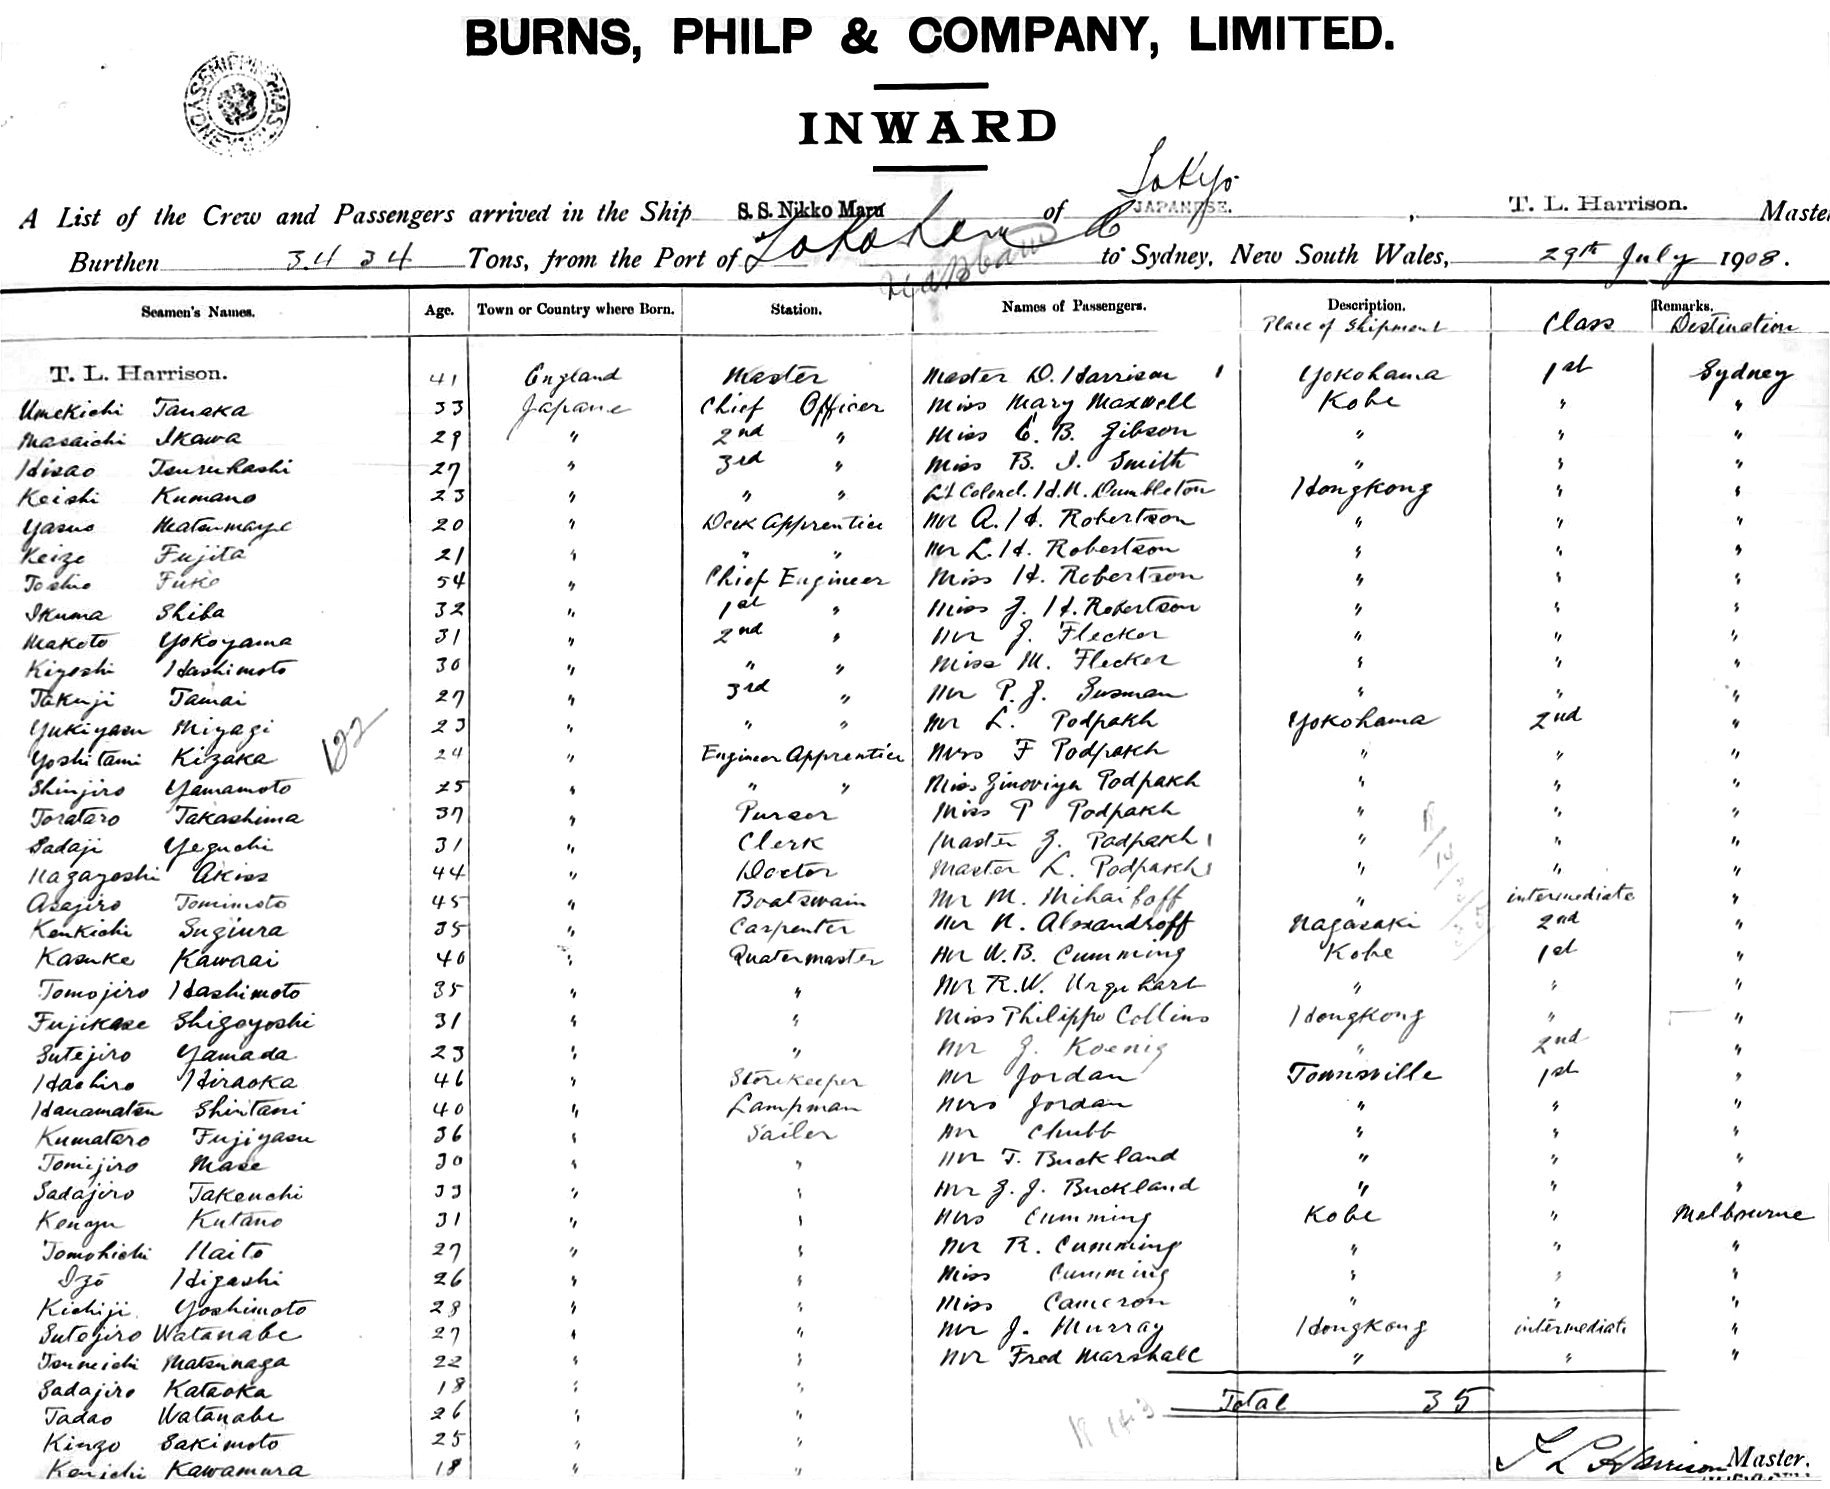 BURNS, PHILP & COMPANY, LIMITED.
INWARD
Tokyo
A List of the Crew and Passengers arrived in the Ship S. S. Nikko Maru of JAPANESE. , T. L. Harrison. Master
Burthen 3434 Tons, from the Port of Yokohama to Sydney, New South Wales, 29th July 1908.
Seamen's Names. Age. Town or Country where Born. Station. Names of Passengers. Description. Remarks.
Place of Shipment Class Destination
T. L. Harrison. 41 England Master Master D. Harrison 1 Yokohama 1st Sydney
Umekichi Tanaka 33 Japane Chief Officer Miss Mary Maxwell Kobe " "
Masaichi Ikawa 29 " 2nd " Miss E. B. Gibson " " "
Hisao Tsuruhashi 27 " 3rd " Miss B. I. Smith " " "
Keishi Kumano 23 " " " Lt Colonel. H.N. Dumbleton Hongkong " "
Yasuo Matsumaye 20 " Deck Apprentice Mr A. H. Robertson " " "
Keizo Fujita 21 " " " Mr L. H. Robertson " " "
Toshio Fuke 54 " Chief Engineer Miss H. Robertson " " "
Ikuma Shiba 32 " 1st " Miss J. H. Robertson " " "
Makoto Yokoyama 31 " 2nd " Mr J. Flecker " " "
Kiyoshi Hashimoto 30 " " " Miss M. Flecker " " "
Takuji Tamai 27 " 3rd " Mr P. J. Susman " " "
Yukiyasu Miyagi 23 " " " Mr L. Podpakh Yokohama 2nd "
Yoshitami Kizaka 24 " Engineer Apprentice Mrs F Podpakh " " "
Shinjiro Yamamoto 25 " " " Miss Zinoviya Podpakh " " "
Torataro Takashima 37 " Purser Miss P Podpakh " " "
Sadaji Yeguchi 31 " Clerk Master J. Podpakh 1 " " "
Nagayoshi 44 " Doctor Master L. Podpakh 1 " " "
Asajiro Tomimoto 45 " Boatswain Mr M. Mihailoff " intermediate "
Kenkichi Sugiura 35 " Carpenter Mr N. Alexandroff Nagasaki 2nd "
Kasuke Kawaai 40 " Quatermaster Mr W. B. Cumming Kobe 1st "
Tomojiro Hashimoto 35 " " Mr R. W. Urquhart " " "
Fujikase Shigoyoshi 31 " " Miss Philippo Collins Hongkong " "
Sutejiro Yamada 23 " " Mr J. Koenig " 2nd "
Hachiro Hiraoka 46 " Storekeeper Mr Jordan Townsville 1st "
Hanamatsu Shintani 40 " Lampman Mrs Jordan " " "
Kumataro Fujiyasu 36 " Sailer Mr Chubb " " "
Tomijiro Mase 30 " " Mr T. Buckland " " "
Sadajiro Takeuchi 33 " " Mr J. J. Buckland " " "
Kengu Kutano 31 " " Mrs Cumming Kobe " Melbourne
Tomohichi Naito 27 " " Mr R. Cumming " " "
Izo Higashi 26 " " Miss Cumming " " "
Kichiji Yoshimoto 28 " " Miss Cameron " " "
Sutejiro Watanabe 27 " " Mr J. Murray Hongkong intermediate "
Tsuneichi Matsunaga 22 " " Mr Fred Marshall " " "
Sadajiro Kataoka 18 " "
Total 35
Tadao Watanabe 26 " "
Kinzo Sakimoto 25 " "
T L Harrison Master.
Kenichi Kawamura 18 " "